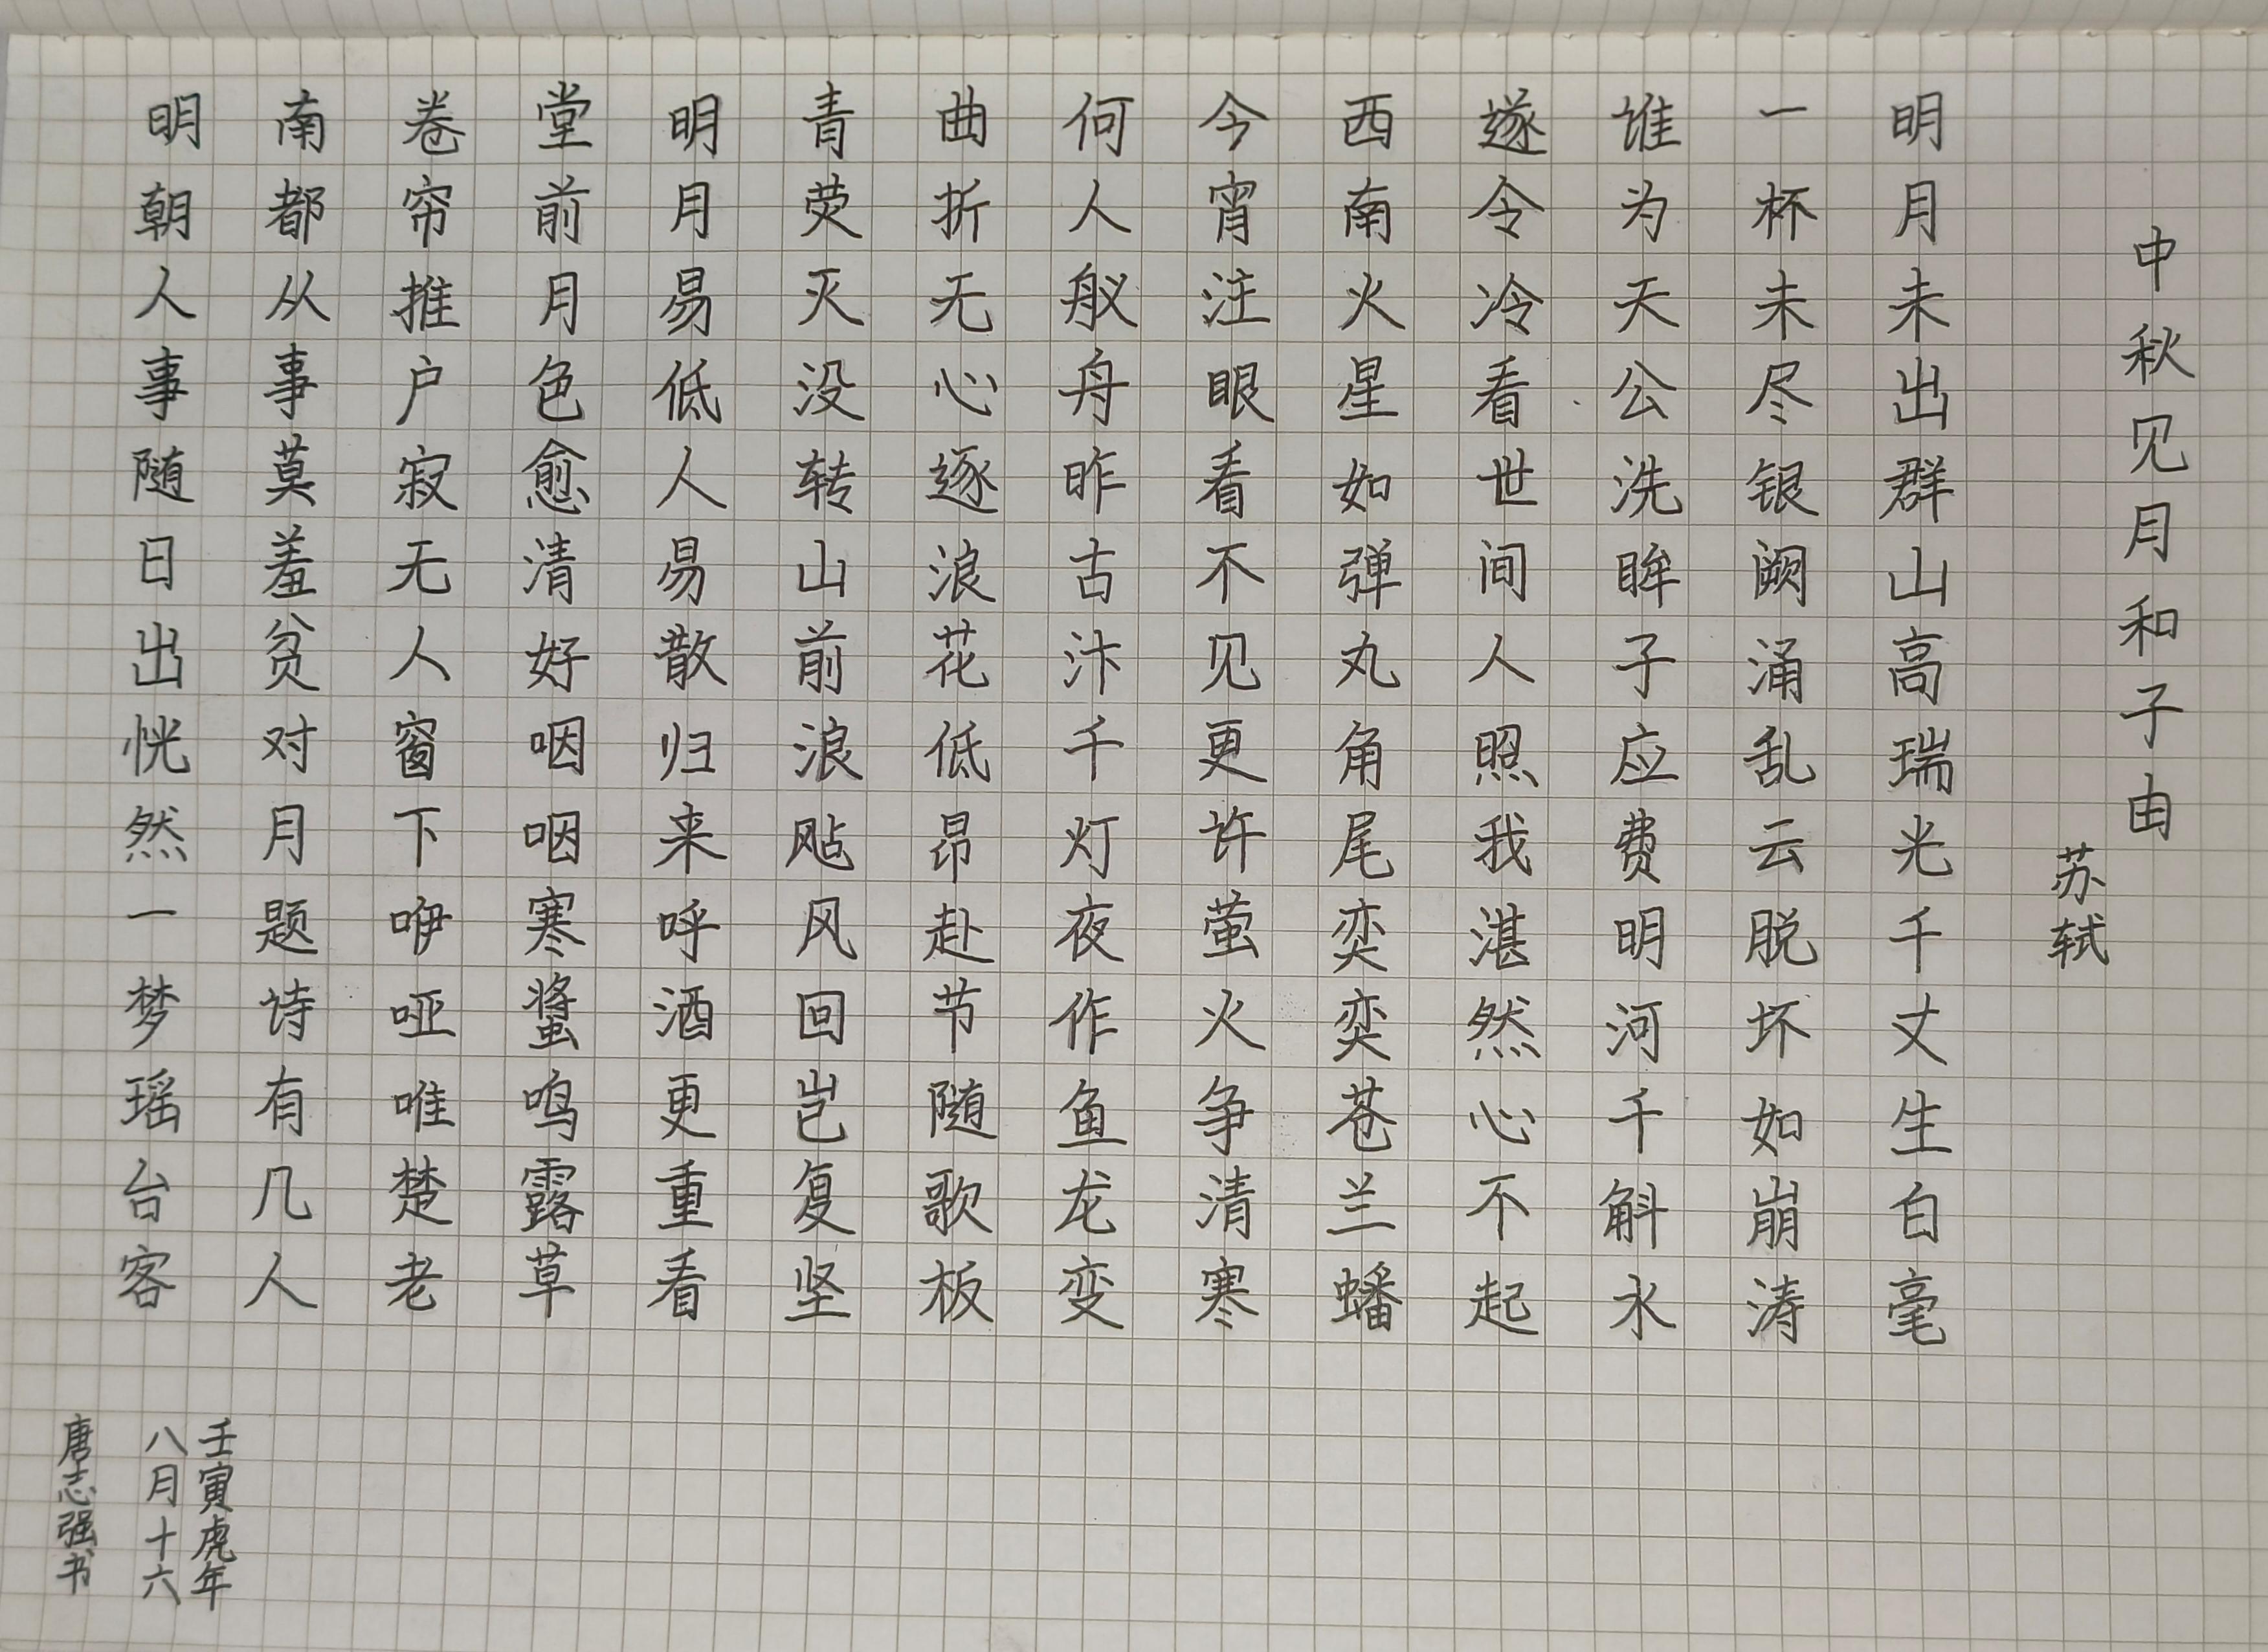 中秋见月和子由
苏轼
明月未出群山高瑞光千丈生白毫
一杯未尽银阙涌乱云脱坏如崩涛
谁为天公洗眸子应费明河千斛水
遂令冷看世间人照我湛然心不起
西南火星如弹丸角尾奕奕苍兰蟠
今宵注眼看不见更许萤火争清寒
何人舣舟昨古汴千灯夜作鱼龙变
曲折无心逐浪花低昂赴节随歌板
青荧灭没转山前浪飐风回岂复坚
明月易低人易散归来呼酒更重看
堂前月色愈清好咽咽寒螀鸣露草
卷帘推户寂无人窗下咿哑唯楚老
南都从事莫羞贫对月题诗有几人
明朝人事随日出恍然一梦瑶台客
壬寅虎年
八月十六
唐志强书